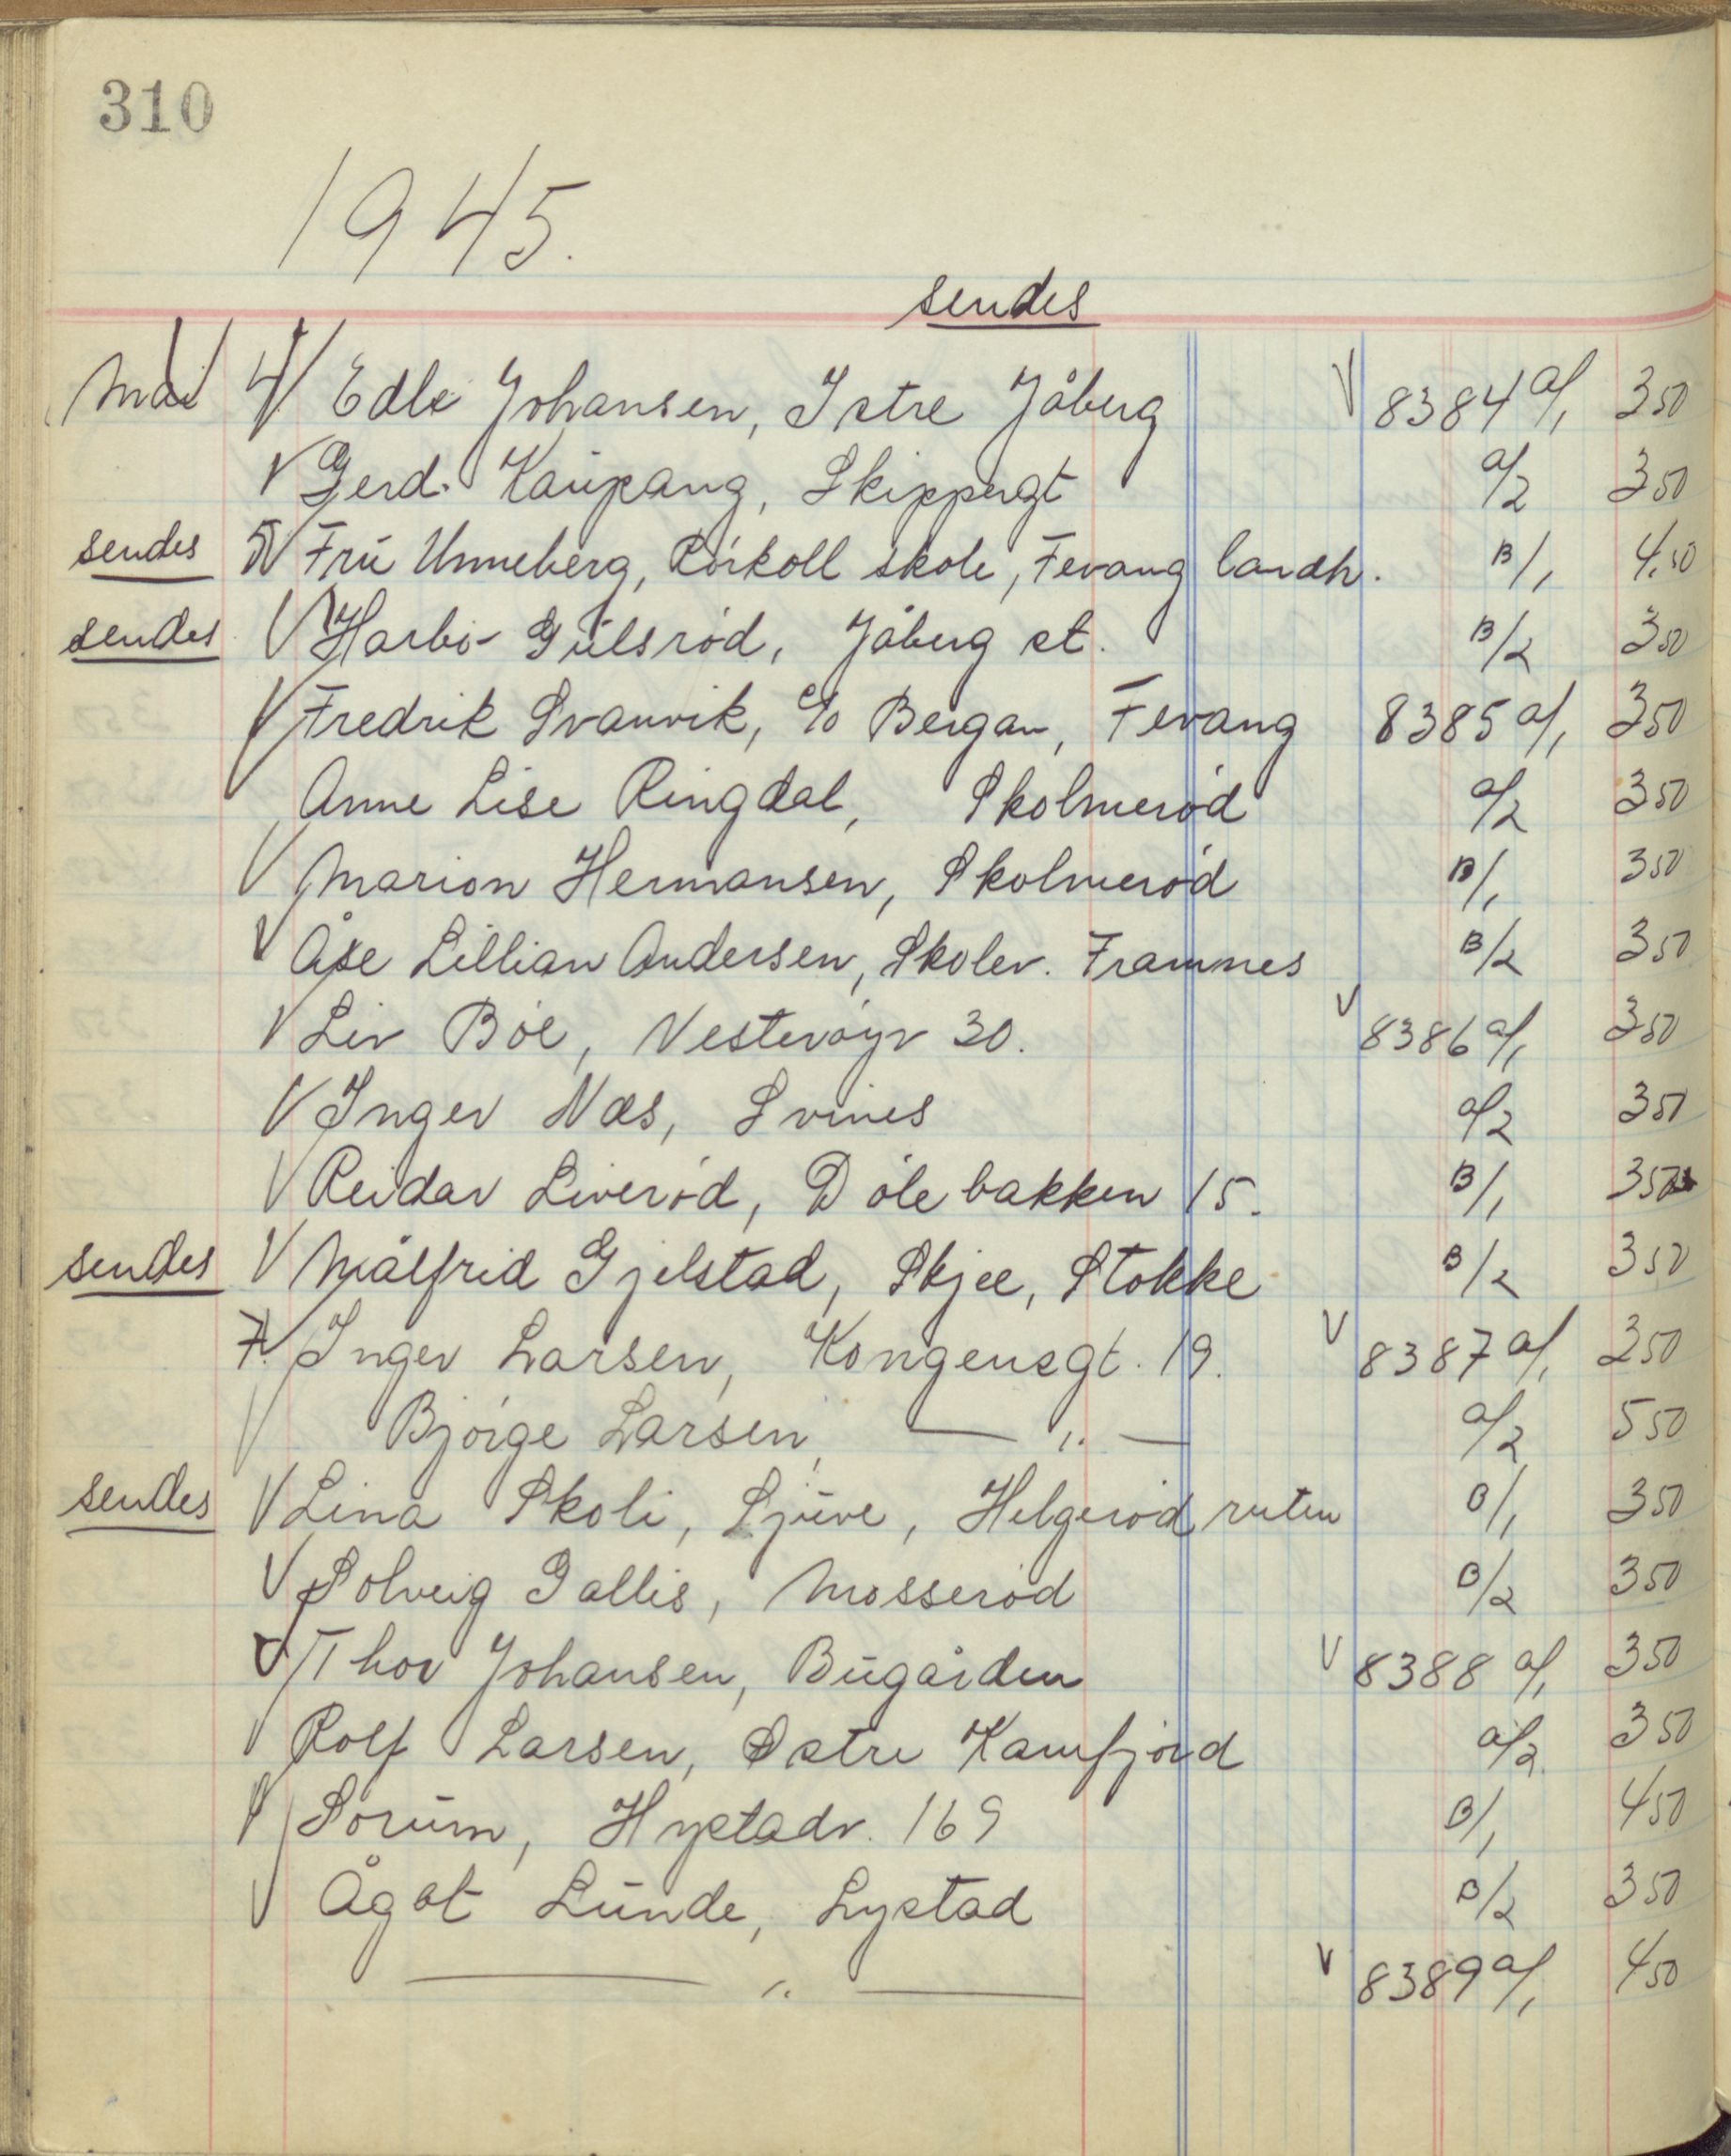 310
1945.
sendes
Mai 4/ V Edle Johansen, Istre Jåberg V 8384 a/1 350
V Gerd Kaupang, Skippergt a/2 350
sendes 5/ V Fru Unneberg, Rörkoll skole, Fevang landh. B/1 4.50
sendes V Harbo Gulsröd, Jåberg st. B/2 350
V Fredrik Svanvik, c/o Bergan, Fevang 8385 a/1 350
Anne Lise Ringdal, Skolmeröd a/2 350
V Marion Hermansen, Skolmeröd B/1 350
V Åse Lillian Andersen, Skolev. Framnes B/2 350
V Liv Böe, Vesteröyv 30. V 8386 a/1 350
V Inger Næs, Svines a/2 350
V Reidar Liveröd, Dölebakken 15. B/1 350
sendes V Målfrid Gjelstad, Skjee, Stokke B/2 350
7. V Inger Larsen, Kongensgt. 19. V 8387 a/1 250
V Björge Larsen, — " — a/2 550
sendes V Lina Skoli, Sjuve, Helgeröd ruten B/1 350
V Solveig Gallis, Mosseröd B/2 350
V Thor Johansen, Bugården V 8388 a/1 350
V Rolf Larsen, Østre Kamfjord a/2 350
V Sörum, Hystadv. 169 B/1 450
V Ågot Lunde, Lystad B/2 350
— " — V 8389 a/1 450